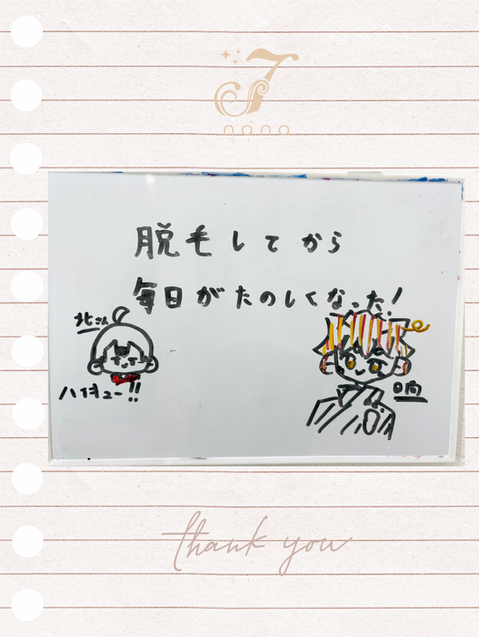 nono
脱毛してから
毎日がたのしくなった!
北さん
ハイキュー!!
日向
thank you